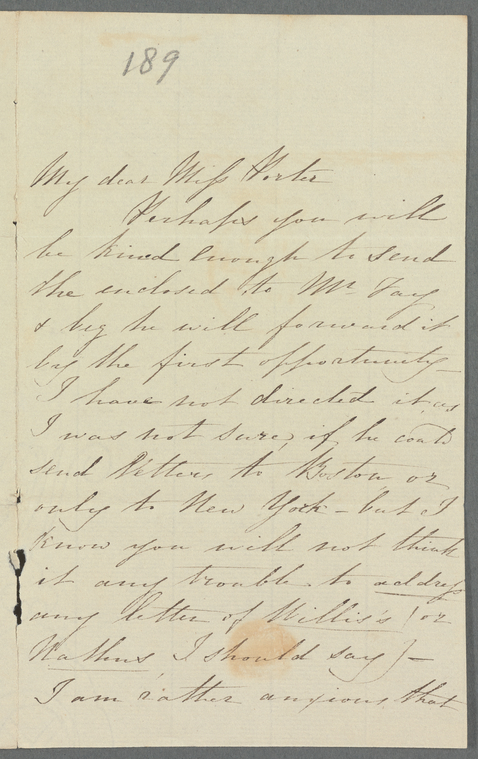 189
My dear Miss Porter
Perhaps you will
be kind enough to send
the enclosed to Mr Fay
& beg he will forward it
by the first opportunity -
I have not directed it, as
I was not sure, if he could
send letters to Boston or
only to New York - but I
know you will not think
it any trouble to address
any letter of Willis's (or
Nathus, I should say) -
I am rather anxious that